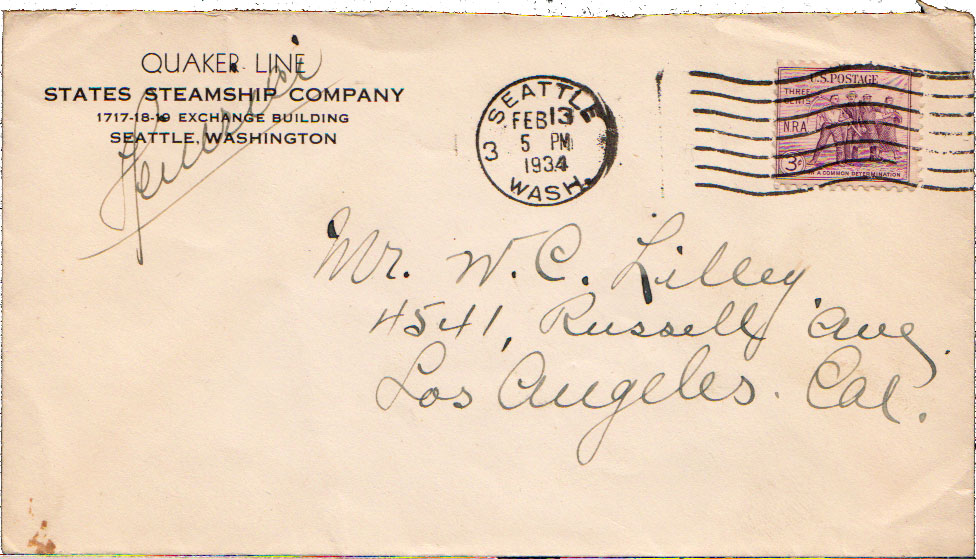 QUAKER LINE
STATES STEAMSHIP COMPANY
1717-18-19 EXCHANGE BUILDING
SEATTLE, WASHINGTON
SEATTLE
FEB 13
5 PM
1934
3
WASH.
U.S. POSTAGE
THREE CENTS
N.R.A.
3¢
A COMMON DETERMINATION
Mr. W. C. Lilley
4541, Russell Ave.
Los Angeles. Cal.